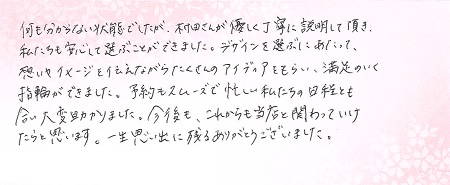 何も分からない状態でしたが、村田さんが優しく丁寧に説明して頂き、
私たちも安心して選ぶことができました。デザインを選ぶにあたって、
想いやイメージを伝えながらたくさんのアイディアをもらい、満足のいく
指輪ができました。予約もスムーズで忙しい私たちの日程とも
合い大変助かりました。今後も、これからも当店と関わっていけ
たらと思います。一生思い出に残るありがとうございました。